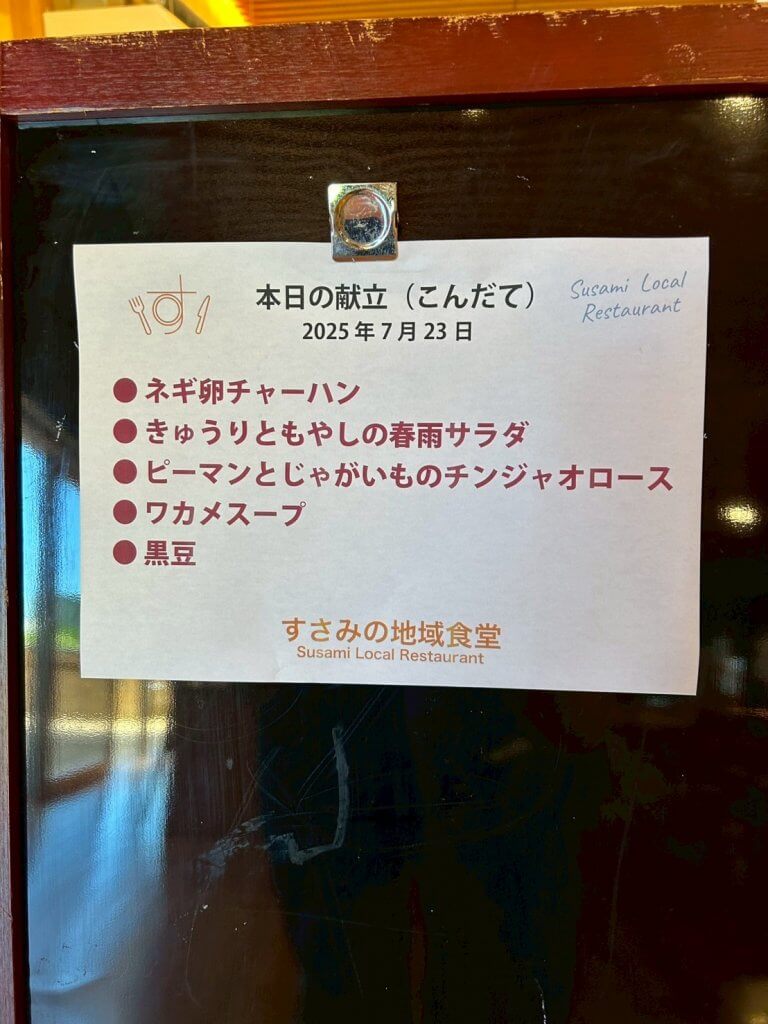 す
本日の献立（こんだて）
Susami Local
Restaurant
2025年7月23日
●ネギ卵チャーハン
●きゅうりともやしの春雨サラダ
●ピーマンとじゃがいものチンジャオロース
●ワカメスープ
●黒豆
すさみの地域食堂
Susami Local Restaurant